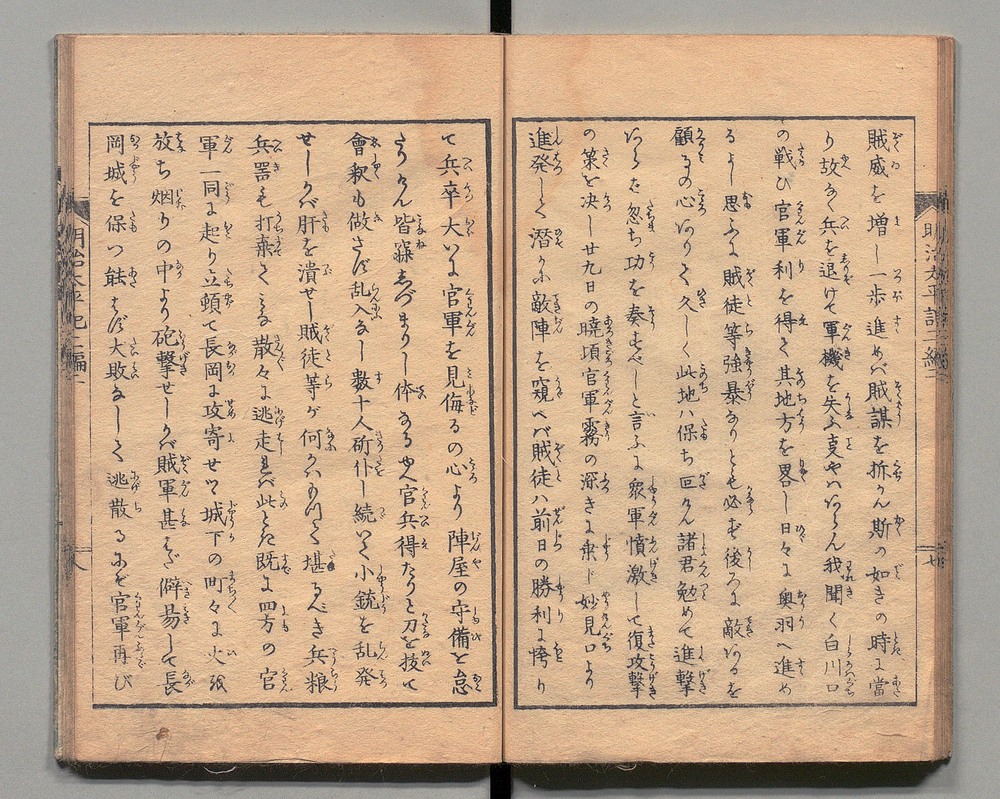 賊威を増し一歩進めバ賊謀を折かん斯の如きの時に當
り故なく兵を退けて軍機を失ふ事やハあらん我聞く白川口
の戦ひ官軍利を得て其地方を畧し日々に奥羽へ進め
るよし思ふに賊徒等強暴なりとも必ず後ろに敵あるを
顧るの心ありて久しく此地ハ保ち叵けん諸君勉めて進撃
あらバ忽ち功を奏すべしと言ふに衆軍憤激して復攻撃
の策を决し廿九日の暁頃官軍霧の深きに乗ド妙見口より
進発して潜かに敵陣を窺へバ賊徒ハ前日の勝利に誇り
て兵卒大いに官軍を見侮るの心より陣屋の守備を怠
りけん皆寐しづまりし体なるゆへ官兵得たりと刀を抜て
會釈も做さず乱入なし数十人斫仆し続いて小銃を乱発
せしかバ肝を潰せし賊徒等ヶ何かハもつて堪るべき兵粮
兵器も打棄てゝ散々に逃走れバ此とき既に四方の官
軍一同に起り立頓て長岡に攻寄せツ城下の町々に火を
放ち烟りの中より砲撃せしかバ賊軍甚はだ僻易して長
岡城を保つ能はず大敗なしして逃散るにぞ官軍再び
明治太平記二編二
八
明治太平記二編二
七